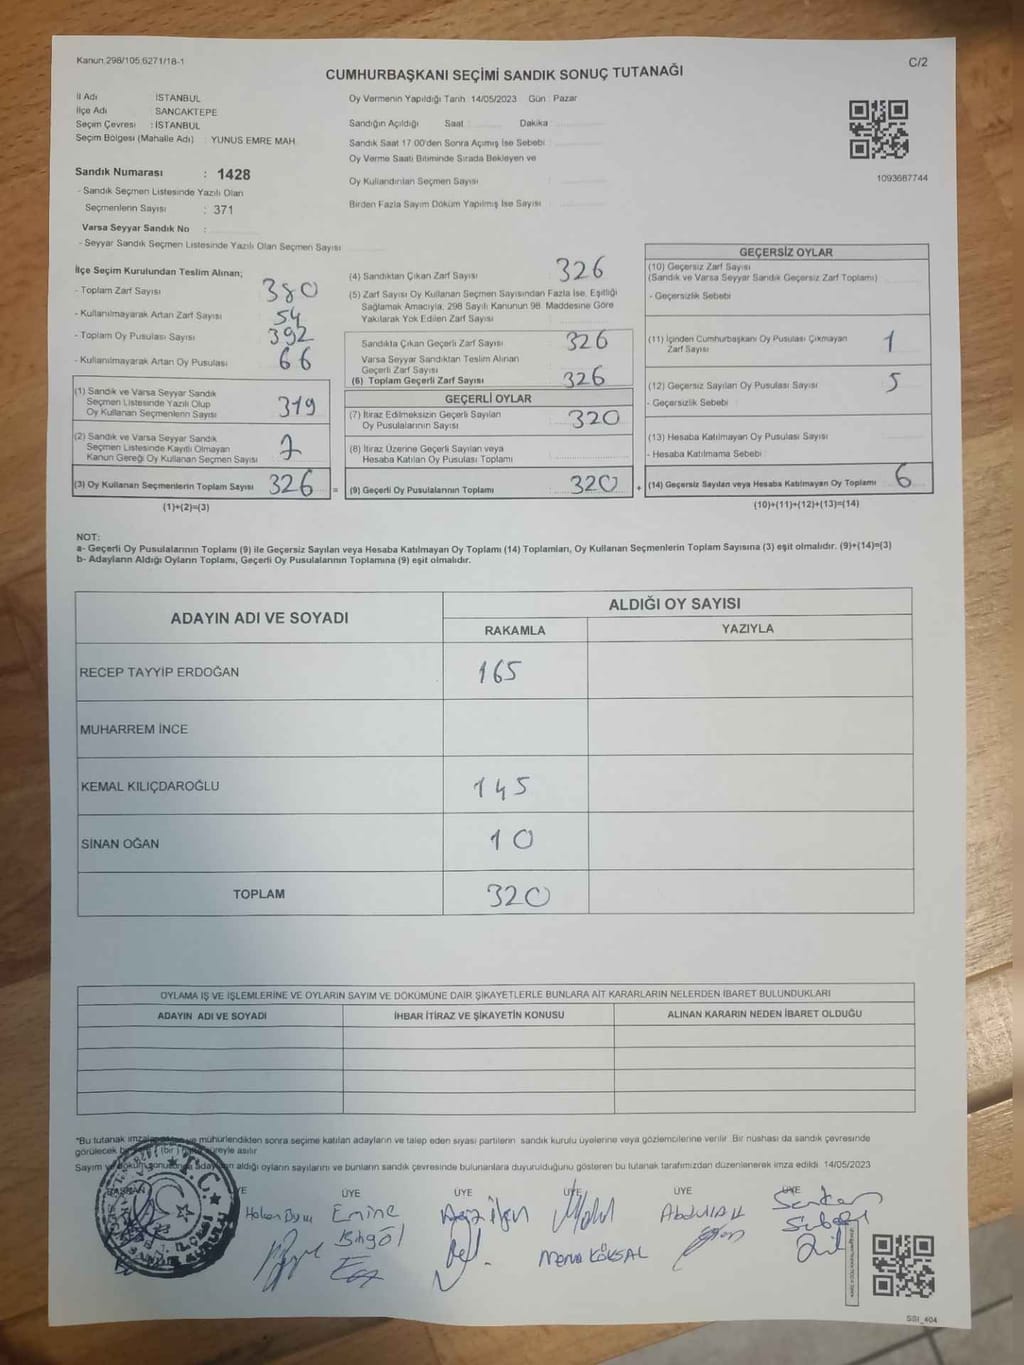 Kanun 298/105,6271/18-1
C/2
CUMHURBAŞKANI SEÇİMİ SANDIK SONUÇ TUTANAĞI
İl Adı İSTANBUL
İlçe Adı SANCAKTEPE
Seçim Çevresi : İSTANBUL
Seçim Bölgesi (Mahalle Adı) : YUNUS EMRE MAH.
Oy Vermenin Yapıldığı Tarih 14/05/2023 Gün : Pazar
Sandığın Açıldığı Saat Dakika
Sandık Saat 17.00'den Sonra Açımış İse Sebebi
Oy Verme Saati Bitiminde Sırada Bekleyen ve
Oy Kullandırılan Seçmen Sayısı
Birden Fazla Sayım Döküm Yapılmış İse Sayısı
1093687744
Sandık Numarası : 1428
- Sandık Seçmen Listesinde Yazılı Olan
Seçmenlerin Sayısı : 371
Varsa Seyyar Sandık No :
- Seyyar Sandık Seçmen Listesinde Yazılı Olan Seçmen Sayısı
İlçe Seçim Kurulundan Teslim Alınan;
- Toplam Zarf Sayısı 380
- Kullanılmayarak Artan Zarf Sayısı 54
- Toplam Oy Pusulası Sayısı 392
- Kullanılmayarak Artan Oy Pusulası 66
(1) Sandık ve Varsa Seyyar Sandık
Seçmen Listesinde Yazılı Olup
Oy Kullanan Seçmenlerin Sayısı 319
(2) Sandık ve Varsa Seyyar Sandık
Seçmen Listesinde Kayıtlı Olmayan
Kanun Gereği Oy Kullanan Seçmen Sayısı 7
(3) Oy Kullanan Seçmenlerin Toplam Sayısı 326 =
(1)+(2)=(3)
(4) Sandıktan Çıkan Zarf Sayısı 326
(5) Zarf Sayısı Oy Kullanan Seçmen Sayısından Fazla İse, Eşitliği
Sağlamak Amacıyla, 298 Sayılı Kanunun 98. Maddesine Göre
Yakılarak Yok Edilen Zarf Sayısı
Sandıkla Çıkan Geçerli Zarf Sayısı 326
Varsa Seyyar Sandıktan Teslim Alınan
Geçerli Zarf Sayısı
(6) Toplam Geçerli Zarf Sayısı 326
GEÇERLİ OYLAR
(7) İtiraz Edilmeksizin Geçerli Sayılan
Oy Pusulalarının Sayısı 320
(8) İtiraz Üzerine Geçerli Sayılan veya
Hesaba Katılan Oy Pusulası Toplamı
(9) Geçerli Oy Pusulalarının Toplamı 320 +
GEÇERSİZ OYLAR
(10) Geçersiz Zarf Sayısı
(Sandık ve Varsa Seyyar Sandık Geçersiz Zarf Toplamı)
- Geçersizlik Sebebi
(11) İçinden Cumhurbaşkanı Oy Pusulası Çıkmayan
Zarf Sayısı 1
(12) Geçersiz Sayılan Oy Pusulası Sayısı 5
- Geçersizlik Sebebi
(13) Hesaba Katılmayan Oy Pusulası Sayısı
- Hesaba Katılmama Sebebi
(14) Geçersiz Sayılan veya Hesaba Katılmayan Oy Toplamı 6
(10)+(11)+(12)+(13)=(14)
NOT:
a- Geçerli Oy Pusulalarının Toplamı (9) ile Geçersiz Sayılan veya Hesaba Katılmayan Oy Toplamı (14) Toplamları, Oy Kullanan Seçmenlerin Toplam Sayısına (3) eşit olmalıdır. (9)+(14)=(3)
b- Adayların Aldığı Oyların Toplamı, Geçerli Oy Pusulalarının Toplamına (9) eşit olmalıdır.
ADAYIN ADI VE SOYADI
ALDIĞI OY SAYISI
RAKAMLA YAZIYLA
RECEP TAYYİP ERDOĞAN 165
MUHARREM İNCE
KEMAL KILIÇDAROĞLU 145
SİNAN OĞAN 10
TOPLAM 320
OYLAMA İŞ VE İŞLEMLERİNE VE OYLARIN SAYIM VE DÖKÜMÜNE DAİR ŞİKAYETLERLE BUNLARA AİT KARARLARIN NELERDEN İBARET BULUNDUKLARI
ADAYIN ADI VE SOYADI İHBAR İTİRAZ VE ŞİKAYETİN KONUSU ALINAN KARARIN NEDEN İBARET OLDUĞU
*Bu tutanak mühürlendikten sonra seçime katılan adayların ve talep eden siyasi partilerin sandık kurulu üyelerine veya gözlemcilerine verilir. Bir nüshası da sandık çevresinde
görülecek (bir) süreyle asılır
Sayım aldığı oyların sayılarını ve bunların sandık çevresinde bulunanlara duyurulduğunu gösteren bu tutanak tarafımızdan düzenlenerek imza edildi. 14/05/2023
ÜYE ÜYE ÜYE ÜYE ÜYE
Hakan Emine Serkan
Bingöl
Merve KÖKSAL
T.C.
SSI_404